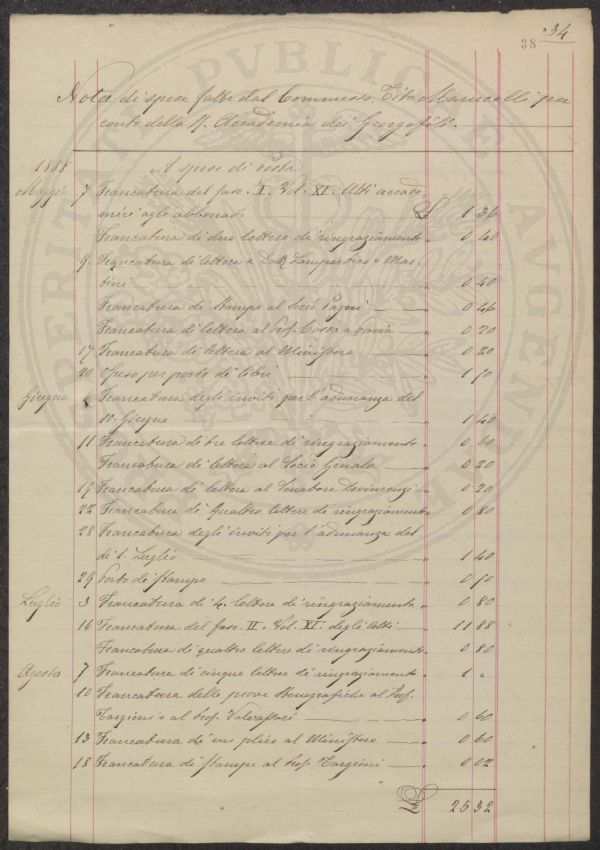 34
38
Nota di spese fatte dal Commesso Tito Marucelli per
conto della R. Accademia dei Georgofili.
1888 A spese di posta
Maggio 7 Francatura del fasc. I. Vol. XI. Atti accade-
mici agli abbonati £ 1 36
Francatura di due lettere di ringraziamento " 0 40
9. Francatura di lettere a Dott. Lampertico e Mar-
tini " 0 40
Francatura di stampe al Socio Pagni " 0 46
Francatura di lettera al Prof. Cossa a Pavia " 0 20
17 Francatura di lettera al Ministero " 0 20
20 Spese per porto di libri " 1 10
Giugno 6 Francatura degli inviti per l'adunanza del
10. Giugno " 1 40
11 Francatura di tre lettere di ringraziamento " 0 60
Francatura di lettera al Socio Genala " 0 20
19 Francatura di lettera al Senatore Devincenzi " 0 20
22 Francatura di quattro lettere di ringraziamento " 0 80
28 Francatura degli inviti per l'adunanza del
dì 1. Luglio " 1 40
29 Porto di stampe " 0 10
Luglio 3 Francatura di 4. lettere di ringraziamento " 0 80
16 Francatura del fasc. II. Vol. XI. degli Atti " 11 88
Francatura di quattro lettere di ringraziamento " 0 80
Agosto 7 Francatura di cinque lettere di ringraziamento " 1 "
10 Francatura delle prove stenografiche al Prof.
Targioni e al Prof. Valvassori " 0 60
13 Francatura di un plico al Ministero " 0 60
18 Francatura di stampe al Prof. Targioni " 0 02
£ 26 32